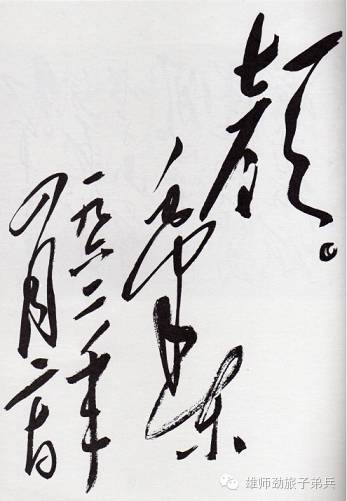 颜。
毛泽东
一九六二年
四月二十日
雄师劲旅子弟兵